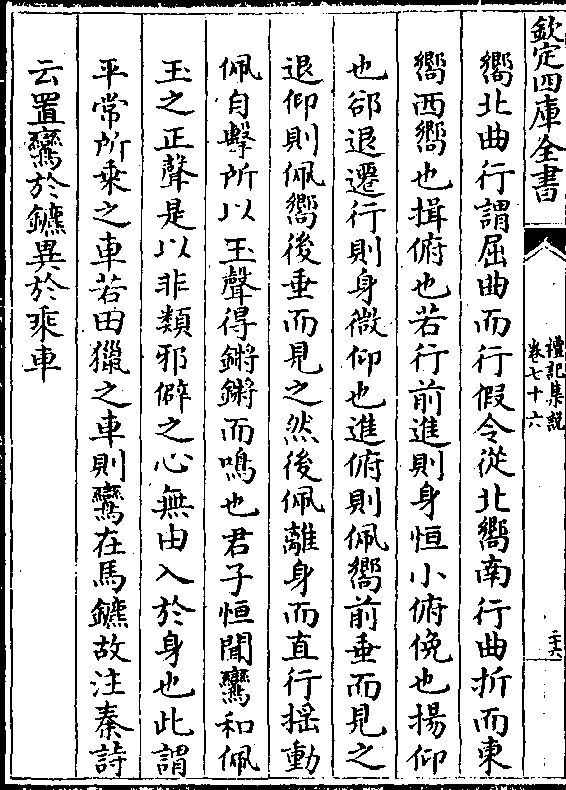 欽定四庫全書
禮記集說
卷七十六
二六
嚮北曲行謂屈曲而行假令從北嚮南行曲折而東
嚮西嚮也揖俯也若行前進則身恒小俯俛也揚仰
也郤退遷行則身微仰也進俯則佩嚮前垂而見之
退仰則佩嚮後垂而見之然後佩離身而直行揺動
佩自擊所以玉聲得鏘鏘而鳴也君子恒聞鸞和佩
玉之正聲是以非類邪僻之心無由入於身也此謂
平常所乘之車若田獵之車則鸞在馬鑣故注秦詩
云置鸞於鑣異於乘車